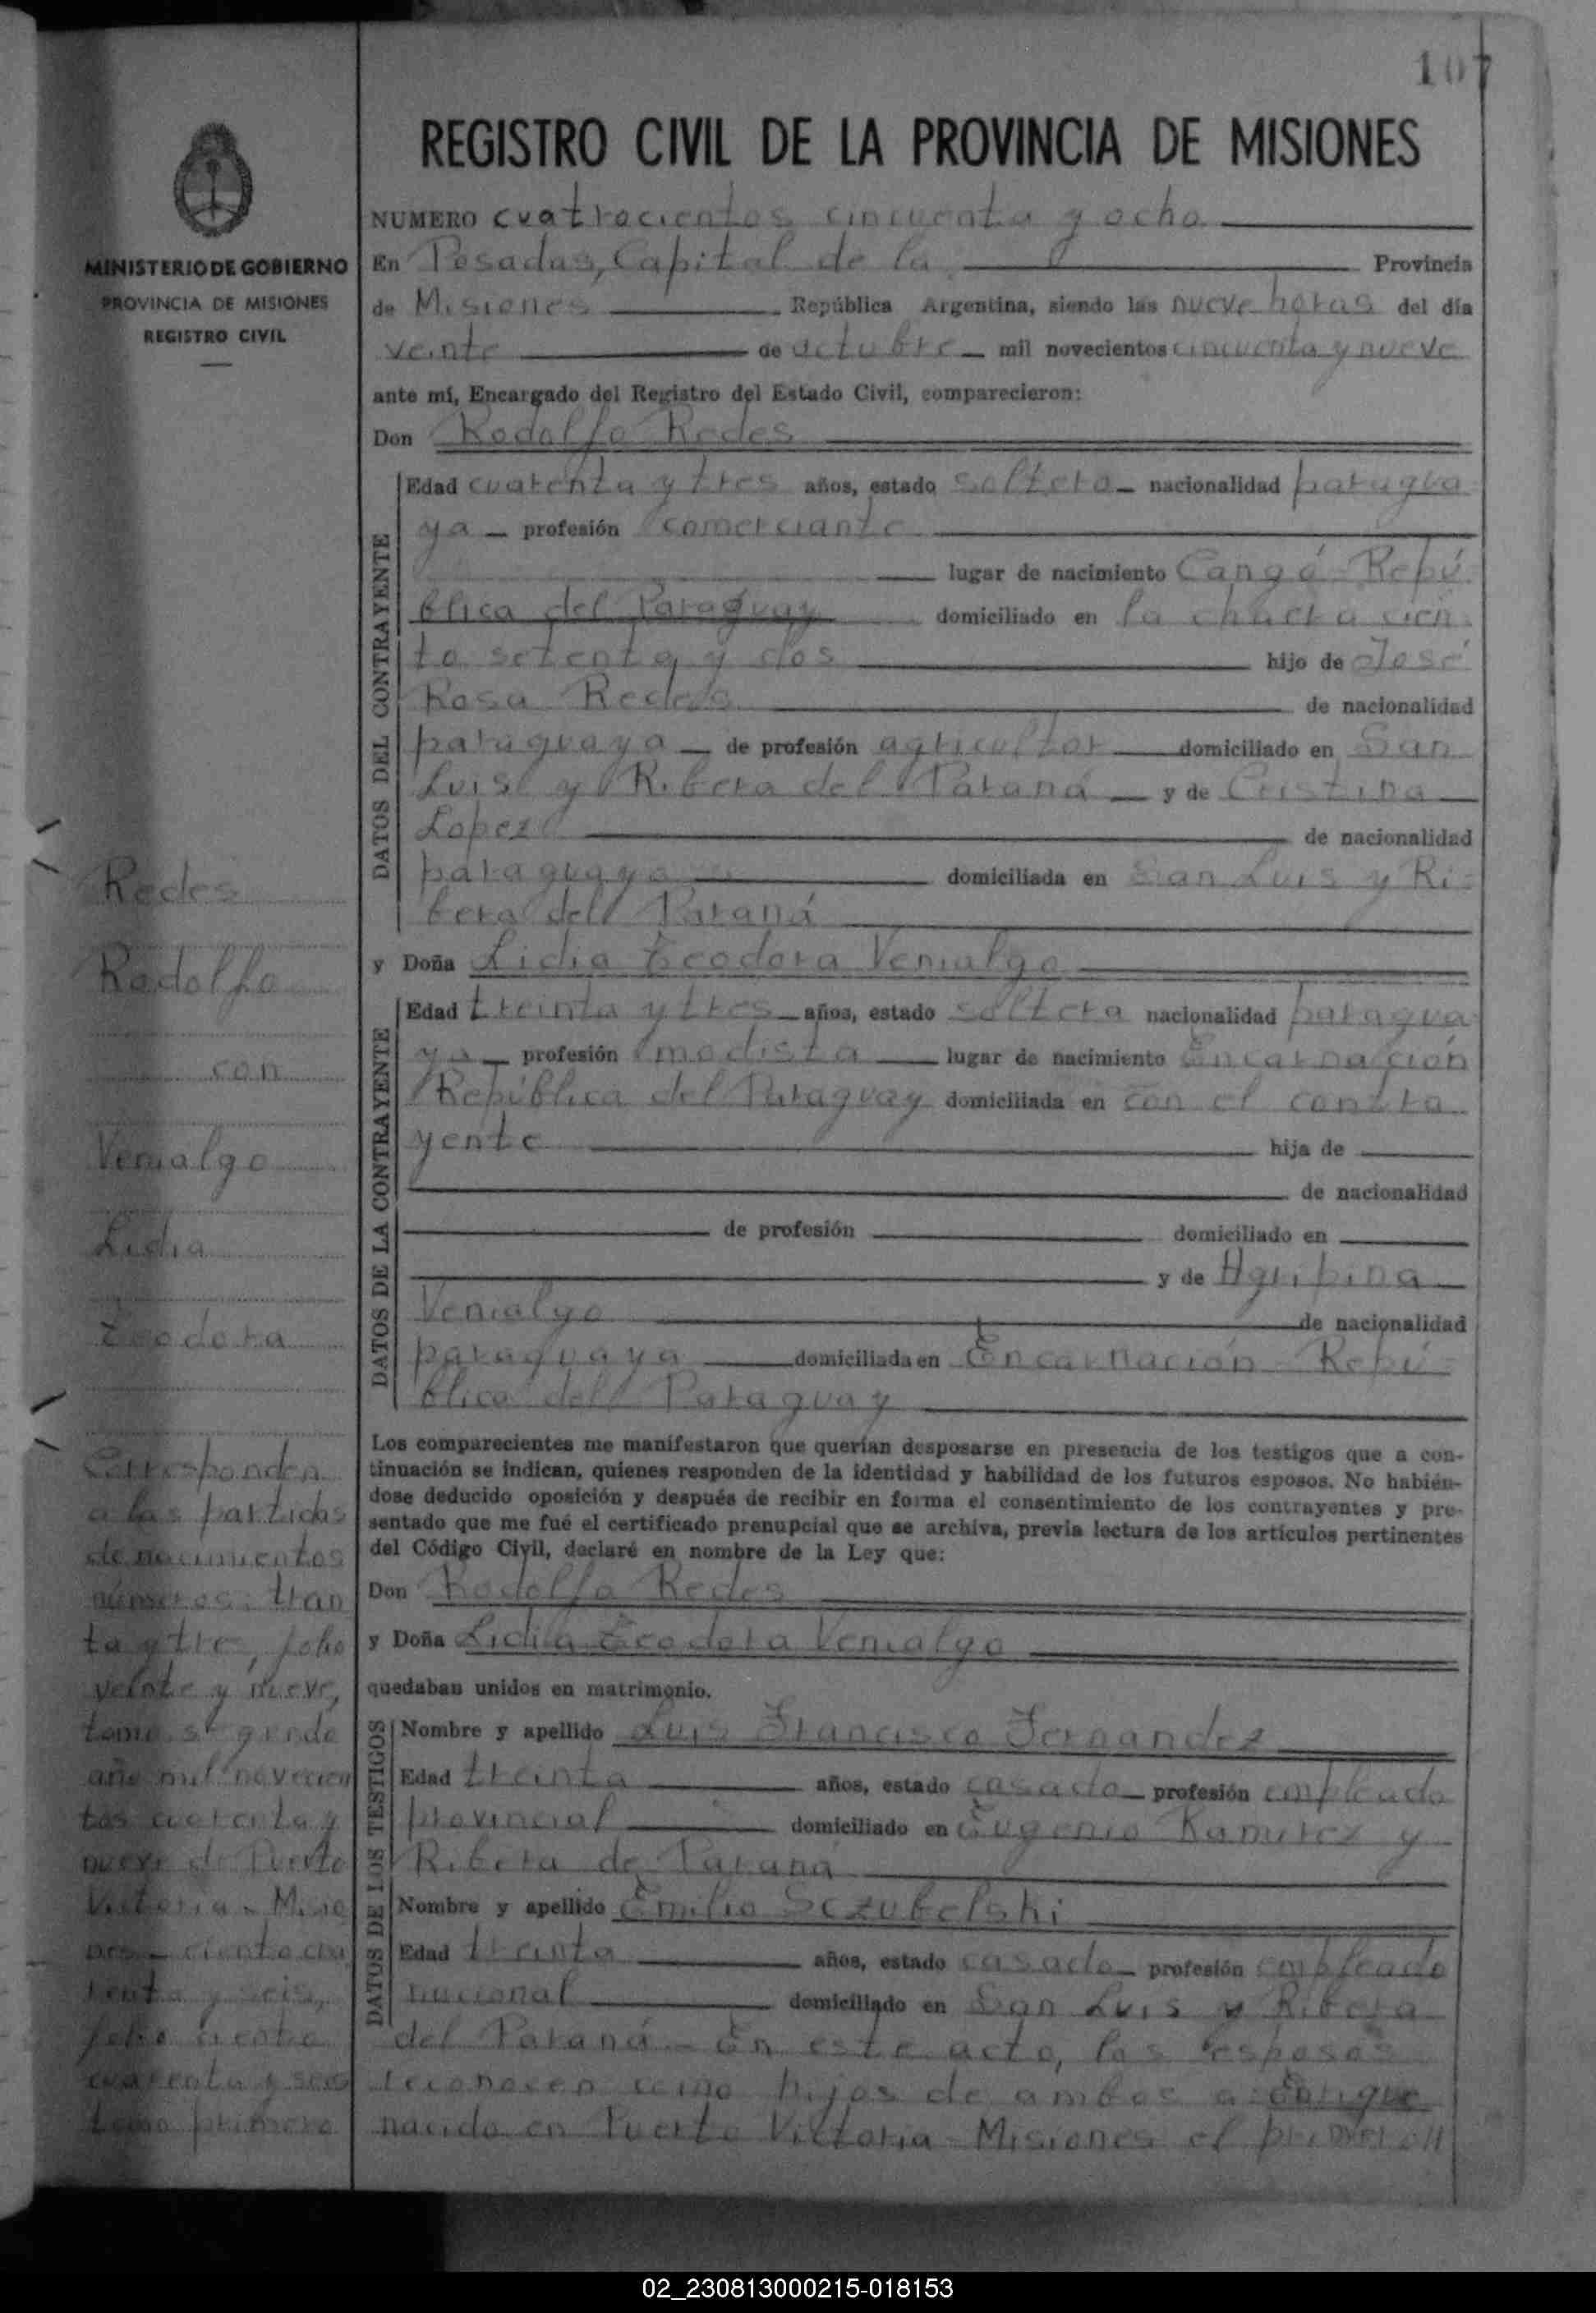 107
REGISTRO CIVIL DE LA PROVINCIA DE MISIONES
MINISTERIO DE GOBIERNO
PROVINCIA DE MISIONES
REGISTRO CIVIL
NUMERO cuatrocientos cincuenta y ocho
En Posadas, Capital de la Provincia
de Misiones República Argentina, siendo las nueve horas del día
veinte de octubre mil novecientos cincuenta y nueve
ante mí, Encargado del Registro del Estado Civil, comparecieron:
Don Rodolfo Redes
DATOS DEL CONTRAYENTE
Edad cuarenta y tres años, estado soltero nacionalidad paragua
ya profesión comerciante
lugar de nacimiento Cangó - Repú
blica del Paraguay domiciliado en la chacra cien
to setenta y dos hijo de José
Rosa Redes de nacionalidad
paraguaya de profesión agricultor domiciliado en San
Luis y Ribera del Paraná y de Cristina
Lopez de nacionalidad
paraguaya domiciliada en San Luis y Ri-
bera del Paraná
y Doña Lidia Teodora Venialgo
DATOS DE LA CONTRAYENTE
Edad treinta y tres años, estado soltera nacionalidad paragua
ya profesión modista lugar de nacimiento Encarnación
República del Paraguay domiciliada en con el contra
yente hija de
de nacionalidad
de profesión domiciliado en
y de Agripina
Venialgo de nacionalidad
paraguaya domiciliada en Encarnación - Repú-
blica del Paraguay
Los comparecientes me manifestaron que querían desposarse en presencia de los testigos que a con-
tinuación se indican, quienes responden de la identidad y habilidad de los futuros esposos. No habién-
dose deducido oposición y después de recibir en forma el consentimiento de los contrayentes y pre-
sentado que me fué el certificado prenupcial que se archiva, previa lectura de los artículos pertinentes
del Código Civil, declaré en nombre de la Ley que:
Don Rodolfo Redes
y Doña Lidia Teodora Venialgo
quedaban unidos en matrimonio.
DATOS DE LOS TESTIGOS
Nombre y apellido Luis Francisco Fernandez
Edad treinta años, estado casado profesión empleado
provincial domiciliado en Eugenio Ramirez y
Ribera de Paraná
Nombre y apellido Emilio Sczubelski
Edad treinta años, estado casado profesión empleado
nacional domiciliado en San Luis y Ribera
del Paraná - En este acto, los esposos
reconocen como hijos de ambos a: Enrique
nacido en Puerto Victoria - Misiones el primero
Redes
Rodolfo
con
Venialgo
Lidia
Teodora
Corresponden
a las partidas
de nacimientos
números: trein
ta y tre, folio
veinte y nueve,
tomo segundo
año mil novecien
tos cuarenta y
nueve de Puerto
Victoria - Misio
nes - ciento cua
renta y seis,
folio ciento
cuarenta y seis
tomo primero
02_230813000215-018153